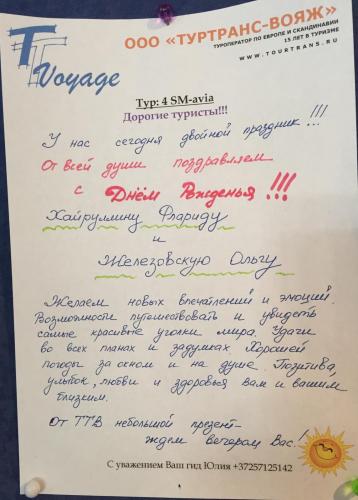 TT Voyage
ООО «ТУРТРАНС-ВОЯЖ»
ТУРОПЕРАТОР ПО ЕВРОПЕ И СКАНДИНАВИИ
15 ЛЕТ В ТУРИЗМЕ
WWW.TOURTRANS.RU
Тур: 4 SM-avia
Дорогие туристы!!!
У нас сегодня двойной праздник!!!
От всей души поздравляем
с Днём Рожденья!!!
Хайруллину Фариду
и
Железовскую Ольгу
Желаем новых впечатлений и эмоций.
Возможности путешествовать и увидеть
самые красивые уголки мира. Удачи
во всех планах и задумках. Хорошей
погоды за окном и на душе. Позитива,
улыбок, любви и здоровья Вам и вашим
близким.
От ТТВ небольшой презент-
ждем вечером Вас!
С уважением Ваш гид Юлия +37257125142